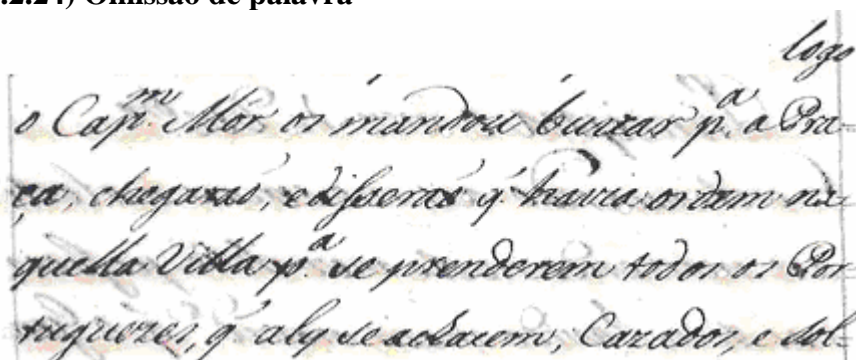 .2.24) Omissão de palavra
logo
o Cap.^m Mór os mandou buscar p.^a a Pra-
ça, chegaraõ, e disseraõ q̃ havia ordem na
quella Villa p.^a se prenderem todos os Por-
tuguezes, q̃ aly se achacem, Cazados, e sol-